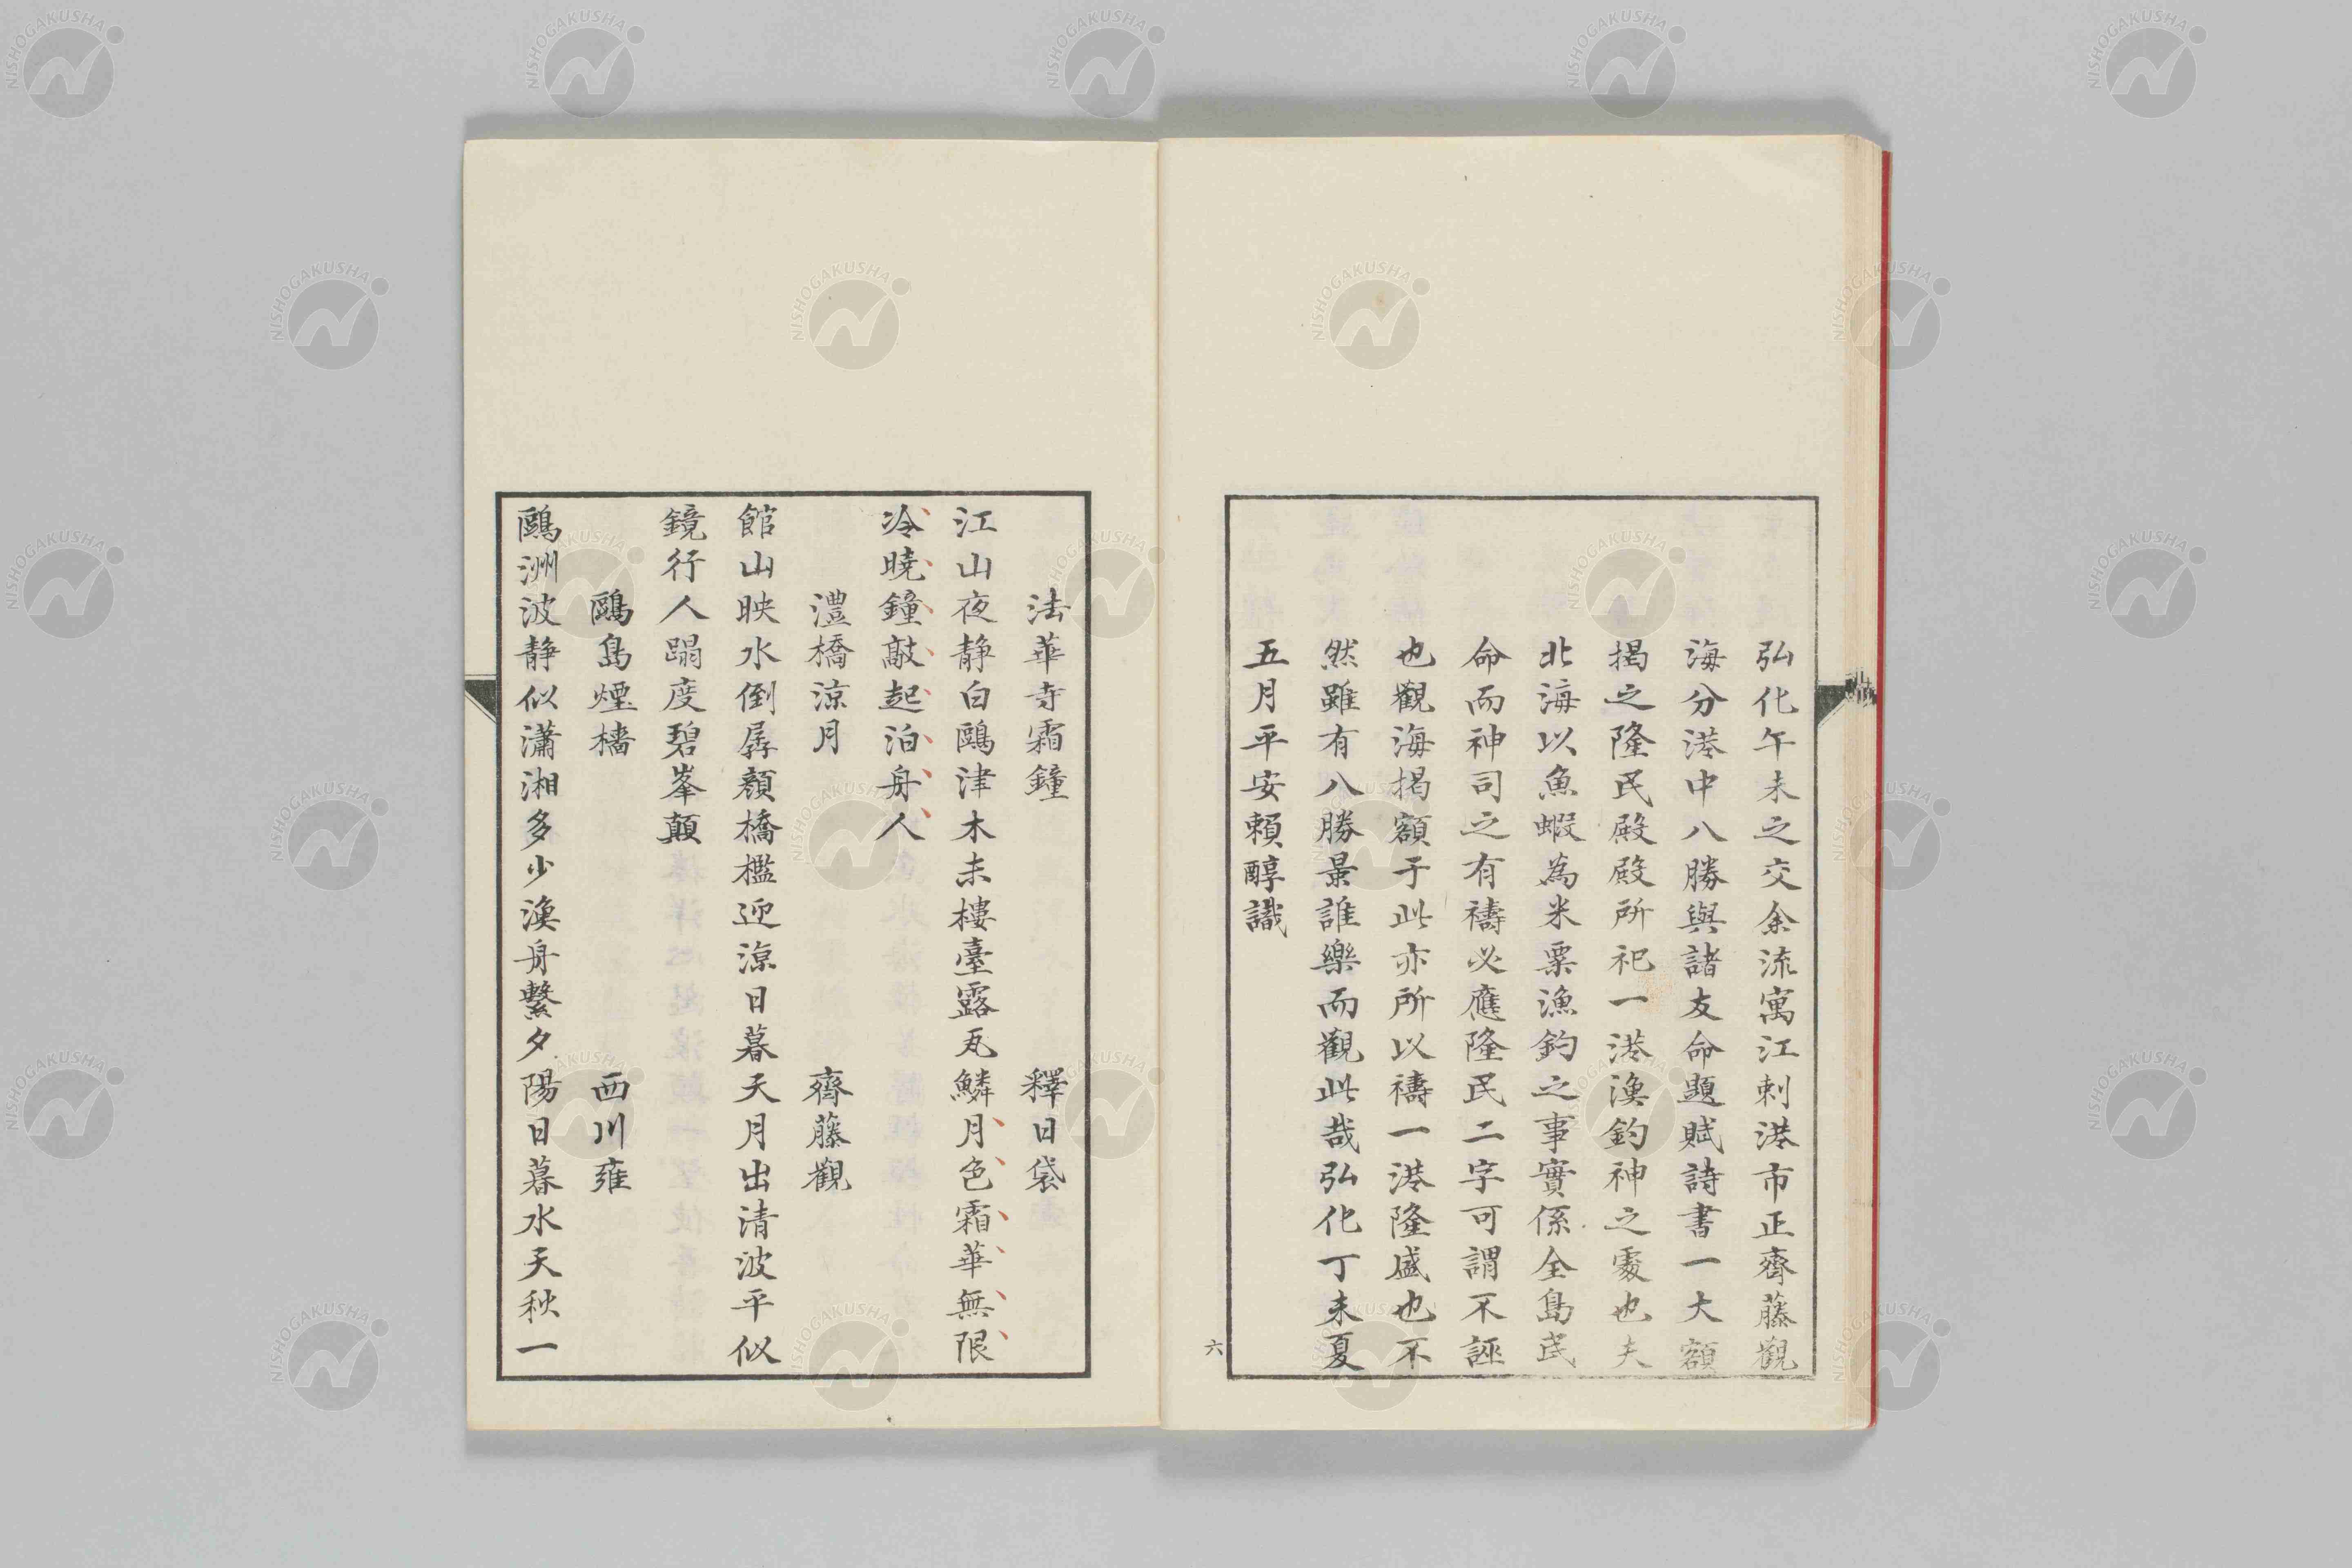 弘化午未之交余流寓江刺港市正齊藤觀
海分港中八勝與諸友命題賦詩書一大額
揭之隆民殿殿所祀一港漁釣神之處也夫
北海以魚蝦為米粟漁釣之事實係全島民
命而神司之有禱必應隆民二字可謂不誣
也觀海揭額于此亦所以禱一港隆盛也不
然雖有八勝景誰樂而觀此哉弘化丁未夏
五月平安賴醇識
六
法華寺霜鐘 釋日袋
江山夜静白鷗津木末樓臺露瓦鱗月色霜華無限
冷曉鐘敲起泊舟人
澧橋涼月 齊藤觀
館山映水倒孱顏橋檻迎涼日暮天月出清波平似
鏡行人蹋度碧峯顛
鷗島煙檣 西川雍
鷗洲波静似瀟湘多少漁舟繫夕陽日暮水天秋一
NISHOGAKUSHA